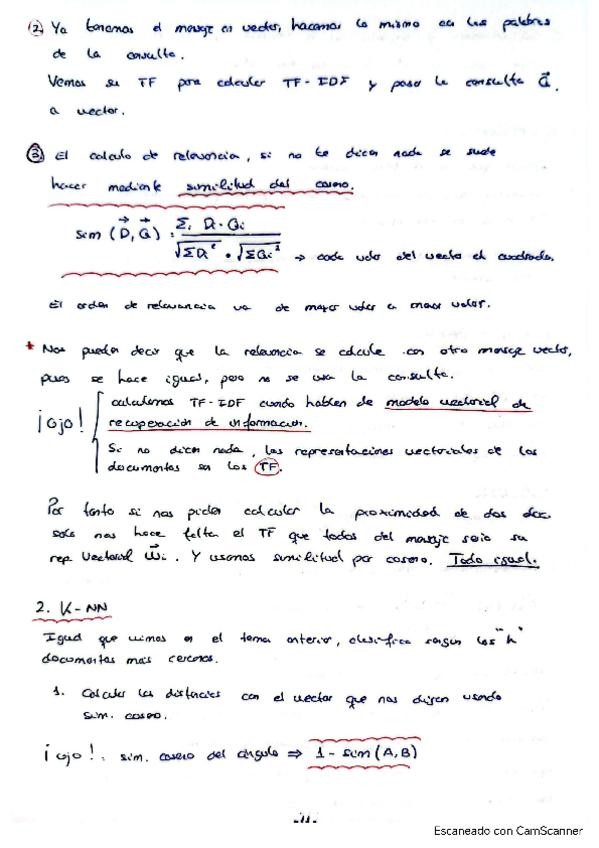 ② Ya tenemos el mensaje en vector, hacemos lo mismo con las palabras
de la consulta.
Vemos su TF para calcular TF-IDF y pasa la consulta Q⃗
a vector.
③ El calculo de relevancia, si no te dicen nada se suele
hacer mediante similitud del coseno.
sim (D⃗, Q⃗) = Σᵢ Dᵢ · Qᵢ / √ΣDᵢ² • √ΣQᵢ² → cada valor del vector al cuadrado.
El orden de relevancia va de mayor valor a menor valor.
* Nos pueden decir que la relevancia se calcule con otro mensaje vector,
pues se hace igual, pero no se usa la consulta.
¡Ojo!
calculamos TF-IDF cuando hablen de modelo vectorial de
recuperación de información.
Si no dicen nada, las representaciones vectoriales de los
documentos son los TF.
Por tanto si nos piden calcular la proximidad de dos doc.
solo nos hace falta el TF que todos del mensaje sería su
rep. Vectorial W⃗ᵢ. Y usamos similitud por coseno. Todo igual.
2. K-NN
Igual que vimos en el tema anterior, clasifica según los "k"
documentos más cercanos.
1. Calcular las distancias con el vector que nos digan usando
sim. coseno.
¡ojo!: sim. coseno del ángulo ⇒ 1 - sim(A,B)
-11-
Escaneado con CamScanner